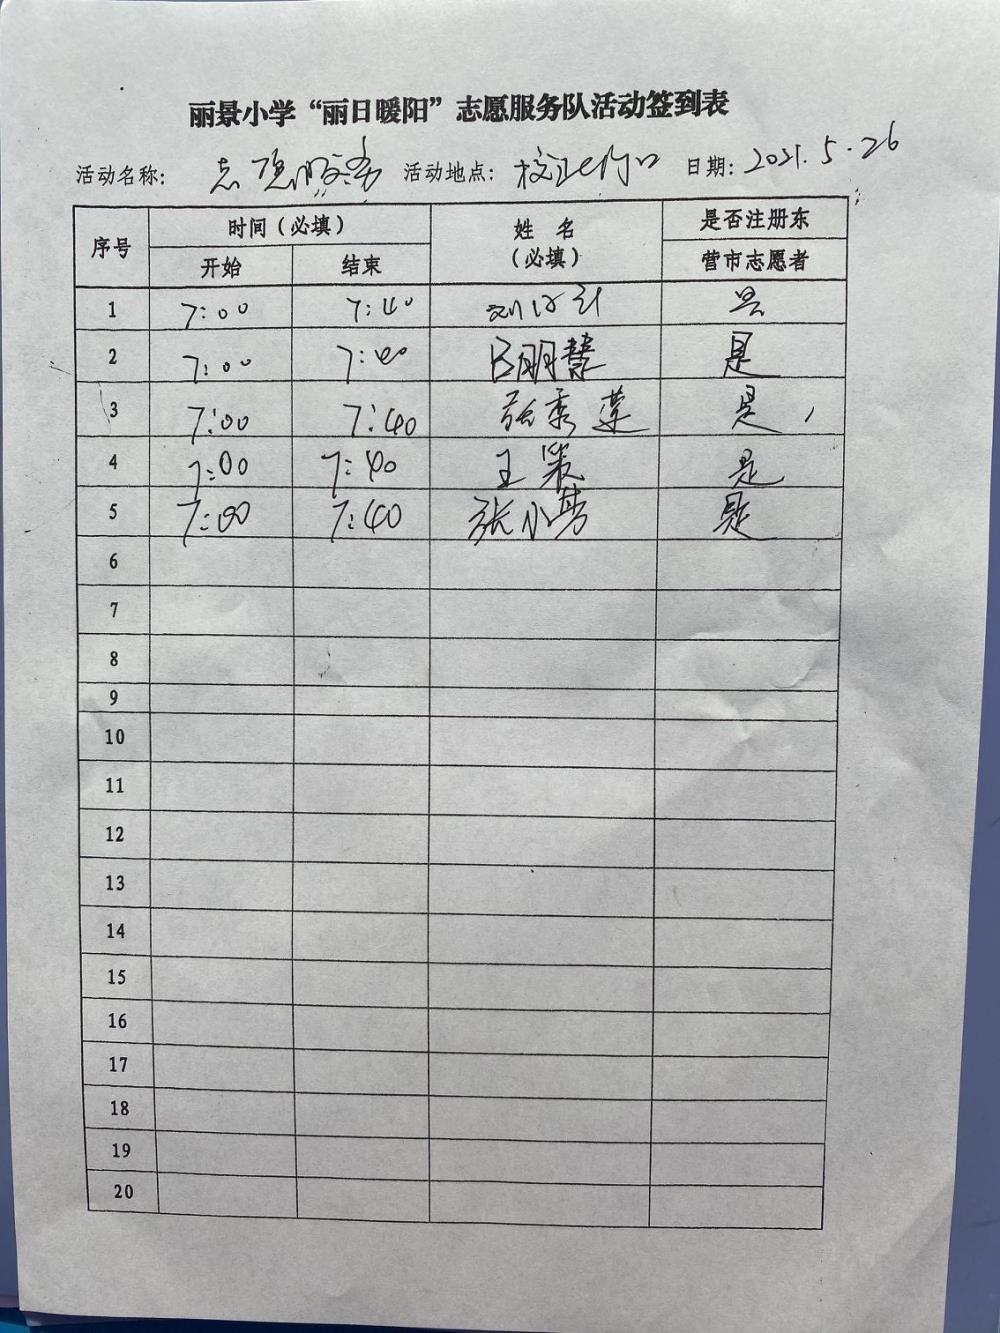 丽景小学“丽日暖阳”志愿服务队活动签到表
活动名称: 志愿服务 活动地点: 校门口 日期: 2021.5.26
序号 时间（必填） 姓 名（必填） 是否注册东营市志愿者
开始 结束
1 7:00 7:40 是
2 7:00 7:40 吕朋慧 是
3 7:00 7:40 张秀莲 是
4 7:00 7:40 王 是
5 7:00 7:40 张小芳 是
6
7
8
9
10
11
12
13
14
15
16
17
18
19
20